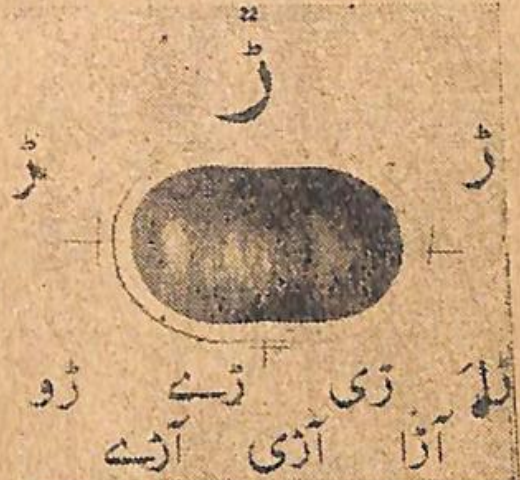 22
ڑ
ڑ ـڑ
ڑی ڑے ڑو
آڑا آڑی آڑے